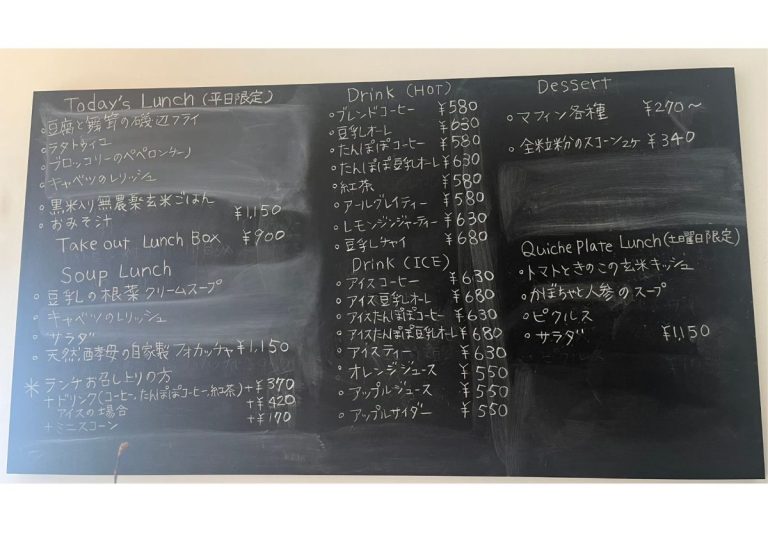 Today's Lunch (平日限定)
○豆腐と舞茸の磯辺フライ
○ラタトゥイユ
○ブロッコリーのペペロンチーノ
○キャベツのレリッシュ
○黒米入り無農薬玄米ごはん
○おみそ汁 ¥1,150
Take out Lunch Box ¥900
Soup Lunch
○豆乳の根菜クリームスープ
○キャベツのレリッシュ
○サラダ
○天然酵母の自家製フォカッチャ ¥1,150
※ランチお召し上りの方
+ドリンク(コーヒー、たんぽぽコーヒー、紅茶) +¥370
アイスの場合 +¥420
+ミニスコーン +¥170
Drink (HOT)
○ブレンドコーヒー ¥580
○豆乳オーレ ¥630
○たんぽぽコーヒー ¥580
○たんぽぽ豆乳オーレ ¥630
○紅茶 ¥580
○アールグレイティー ¥580
○レモンジンジャーティー ¥630
○豆乳チャイ ¥680
Drink (ICE)
○アイスコーヒー ¥630
○アイス豆乳オーレ ¥680
○アイスたんぽぽコーヒー ¥630
○アイスたんぽぽ豆乳オーレ ¥680
○アイスティー ¥630
○オレンジジュース ¥550
○アップルジュース ¥550
○アップルサイダー ¥550
Dessert
○マフィン各種 ¥270〜
○全粒粉のスコーン2ヶ ¥340
Quiche Plate Lunch (土曜日限定)
○トマトときのこの玄米キッシュ
○かぼちゃと人参のスープ
○ピクルス
○サラダ ¥1,150